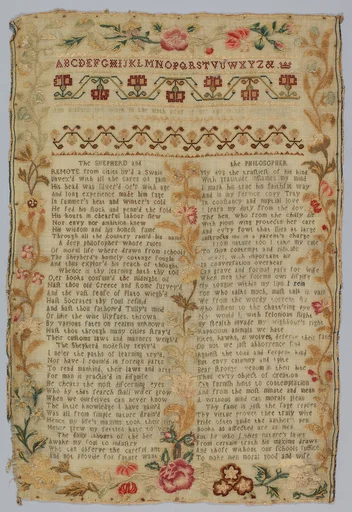 ABCDEFGHIJKLMNOPQRSTVUWXYZ&
The SHEPHERD and
REMOTE from cities liv'd a Swain
Unvex'd with all the cares of gain
His head was silver'd o'er with age
And long experience made him sage
In summer's heat and winter's cold
He fed his flock and pen'd the fold
His hours in chearful labour flew
Nor envy nor ambition knew
His wisdom and his honest fame
Through all the country rais'd his name
A deep philosopher whose rules
Of moral life where drawn from schools
The Shepherd's homely cottage sought
And thus explor'd his reach of thought
Whence is thy learning hath thy toil
O,er books consum'd the midnight oil
Hast thou old Greece and Rome survey'd
And the vast sense of Plato weigh'd
Hath Socrates thy soul refin'd
And hast thou fathom'd Tully's mind
Or like the wise Ulysses thrown
By various fates on realms unknown
Hast thou through many cities stray'd
Their customs laws and manners weigh'd
The Shepherd modestly reply'd
I ne'er the paths of learning try'd
Nor have I roam'd in foreign parts
To read mankind their laws and arts
For man is practis'd in disguise
He cheats the most discerning eyes
Who by that search shall wiser grow
When we ourselves can never know
The little knowledge I have gain'd
Was all from simple nature drain'd
Hence my life's maxims took their rise
Hence grew my settled hate to vice
The daily labours of the bee
Awake my soul to industry
Who can observe the careful ant
And not provide for future want
the PHILOSOPHER
My dog the trustiest of his kind
With gratitude inflames my mind
I mark his true his faithful way
And in my service copy Tray
In constancy and nuptial love
I learn my duty from the dove
The hen, who from the chilly air
With pious wing protects her care
And every fowl that flies at large
Instructs me in a parent's charge
From nature too I take my rule
To shun contempt and ridicule
I never, with important air
In conversation overbear
Can grave and formal pass for wise
When men the solemn owl despise
My tongue within my lips I rein
For who talks much, must talk in vain
We from the wordy torrent fly
Who listens to the chattering pye
Nor would I, with felonious flight
By stealth invade my neighbour's right
Rapacious animals we hate
Kites, hawks, & wolves, deserve their fate
Do not we just abhorrence find
Against the toad and serpent kind
But envy calumny and spite
Bear stronger venom in their bite
Thus every object of creation
Can furnish hints to contemplation
And from the most minute and mean
A virtuous mind can morals glean
Thy fame is just the sage replies
Thy virtue proves thee truly wise
Pride often guide the author's pen
Books as affected are as men
But he who studies nature's laws
From certain truth his maxims draws
And those without our schools suffice
To make men moral good and wise